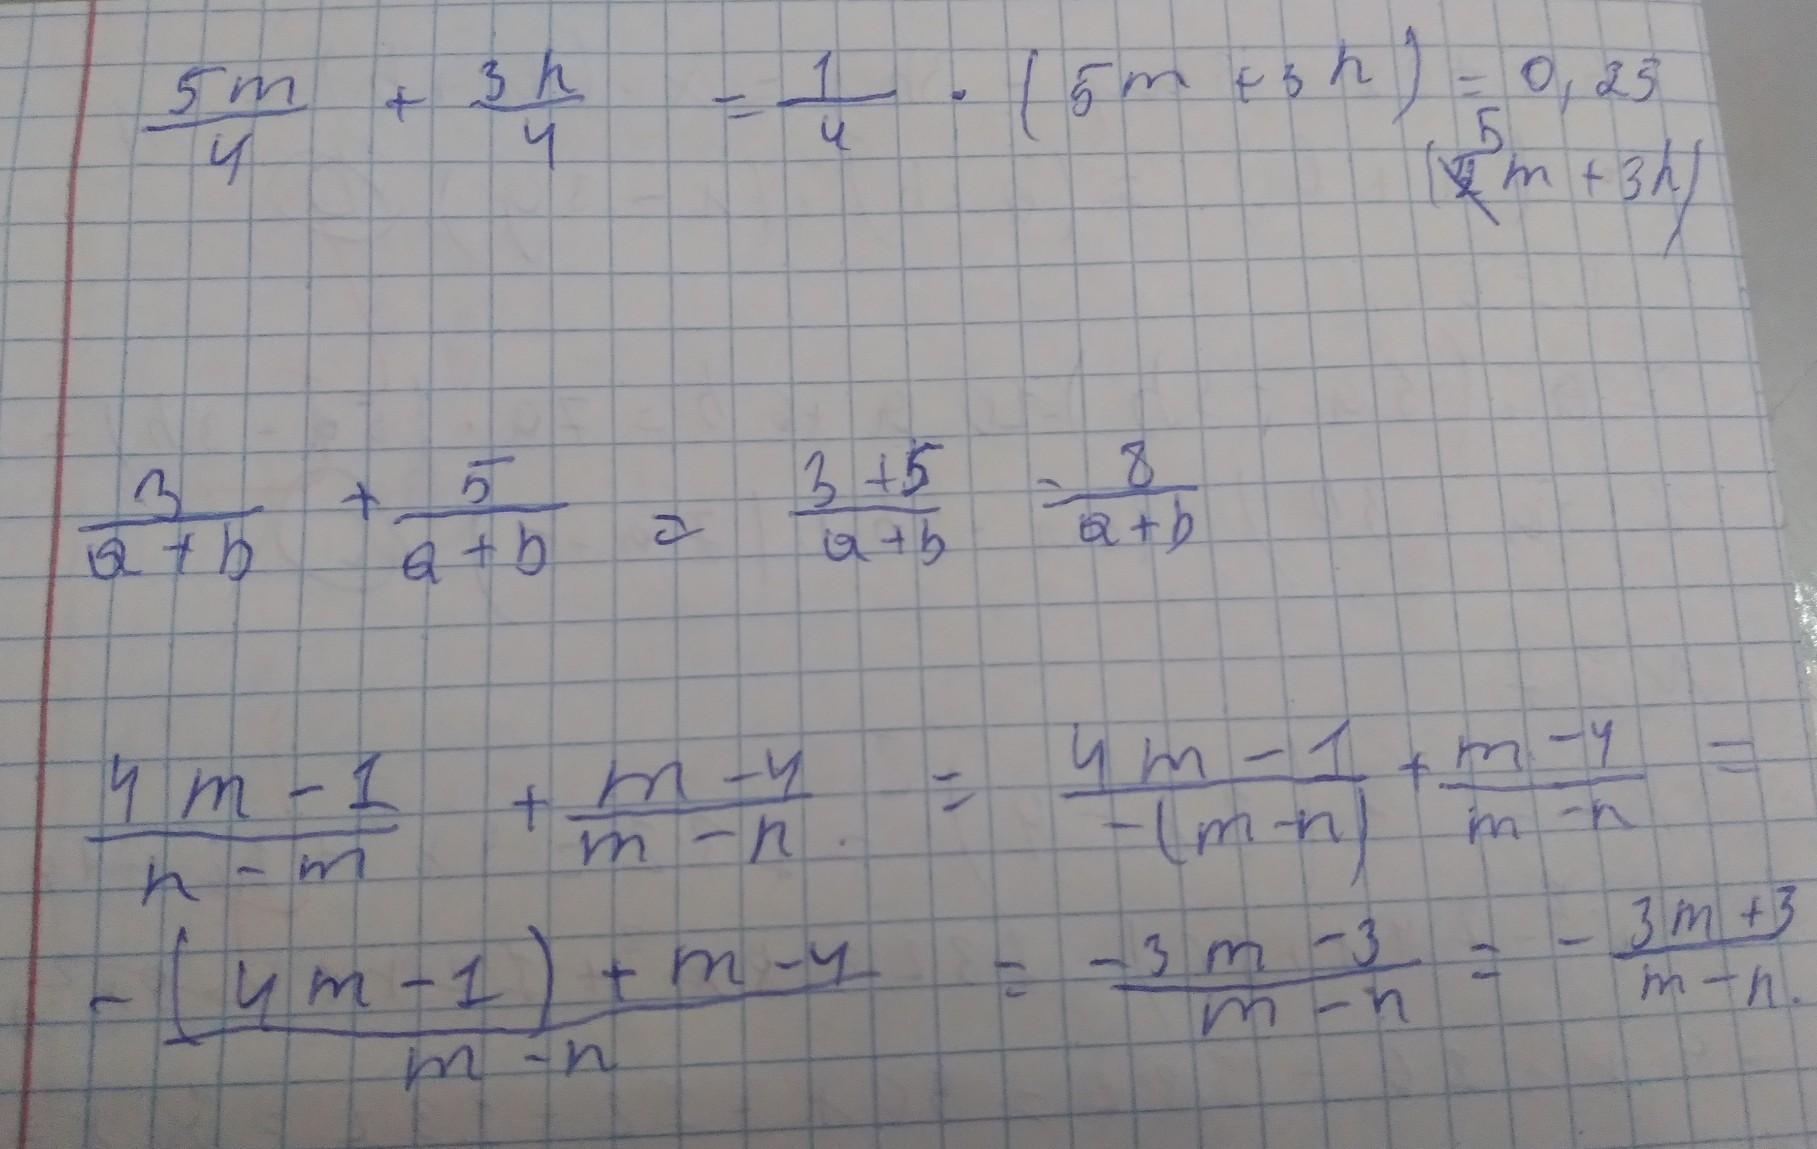 5m/4 + 3n/4 = 1/4 · (5m + 3n) = 0,25
(5m + 3n)
3/(a+b) + 5/(a+b) = (3+5)/(a+b) = 8/(a+b)
(4m-1)/(n-m) + (m-4)/(m-n) = (4m-1)/(-(m-n)) + (m-4)/(m-n) =
(-(4m-1)+m-4)/(m-n) = (-3m-3)/(m-n) = -(3m+3)/(m-n).